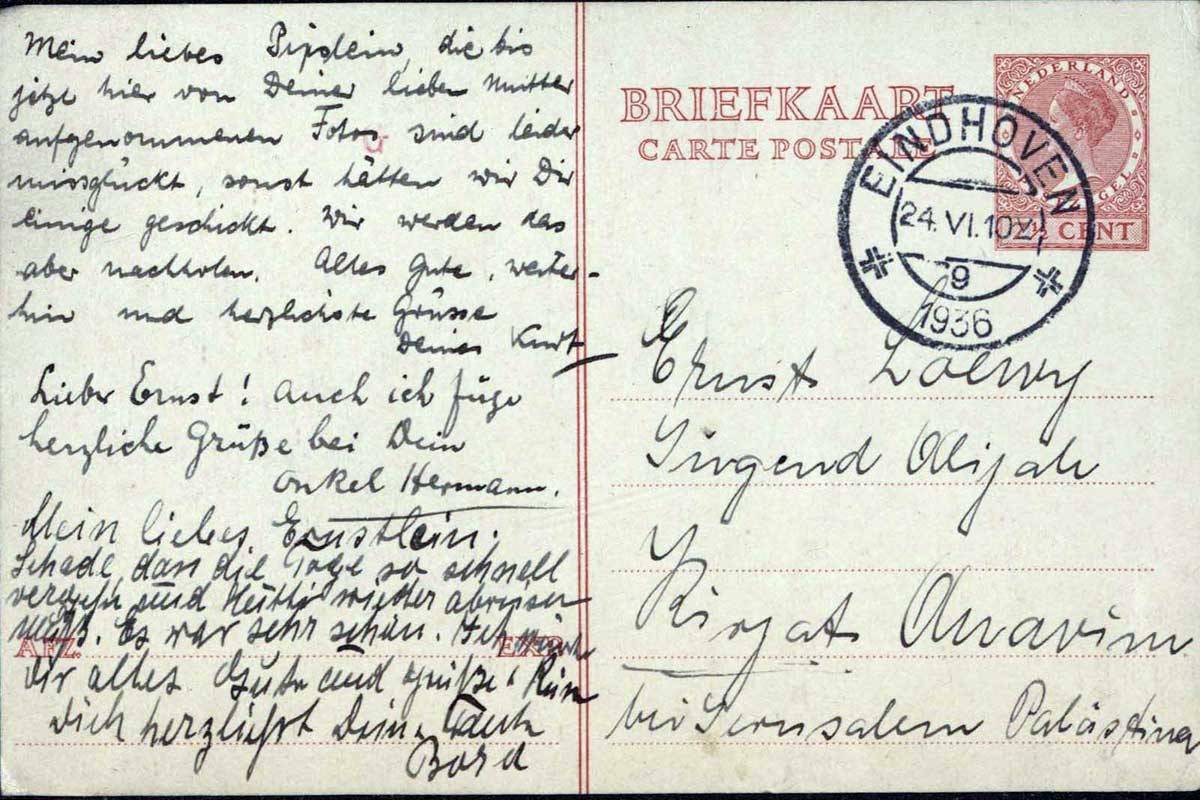 Mein liebes Pipslein, die bis
jetzt hier von Deiner lieben Mutter
aufgenommenen Fotos sind leider
missglückt, sonst hätten wir Dir
einige geschickt. Wir werden das
aber nachholen. Alles Gute, weiter-
hin und herzlichste Grüsse
Deines Kurt
Lieber Ernst! Auch ich füge
herzliche Grüße bei Dein
Onkel Hermann.
Mein liebes Ernstlein.
Schade, dass die Tage so schnell
vergehn und Mutti wieder abreisen
muss. Es war sehr schön. Ich
Dir alles Gute und grüße
Dich herzlichst Deine Tante
AFZ.
BRIEFKAART
CARTE POSTALE
NEDERLAND
CENT
EINDHOVEN
24.VI.10
9
1936
Ernst Loewy
Jugend Alijah
Kirjat Anavim
bei Jerusalem Palästina